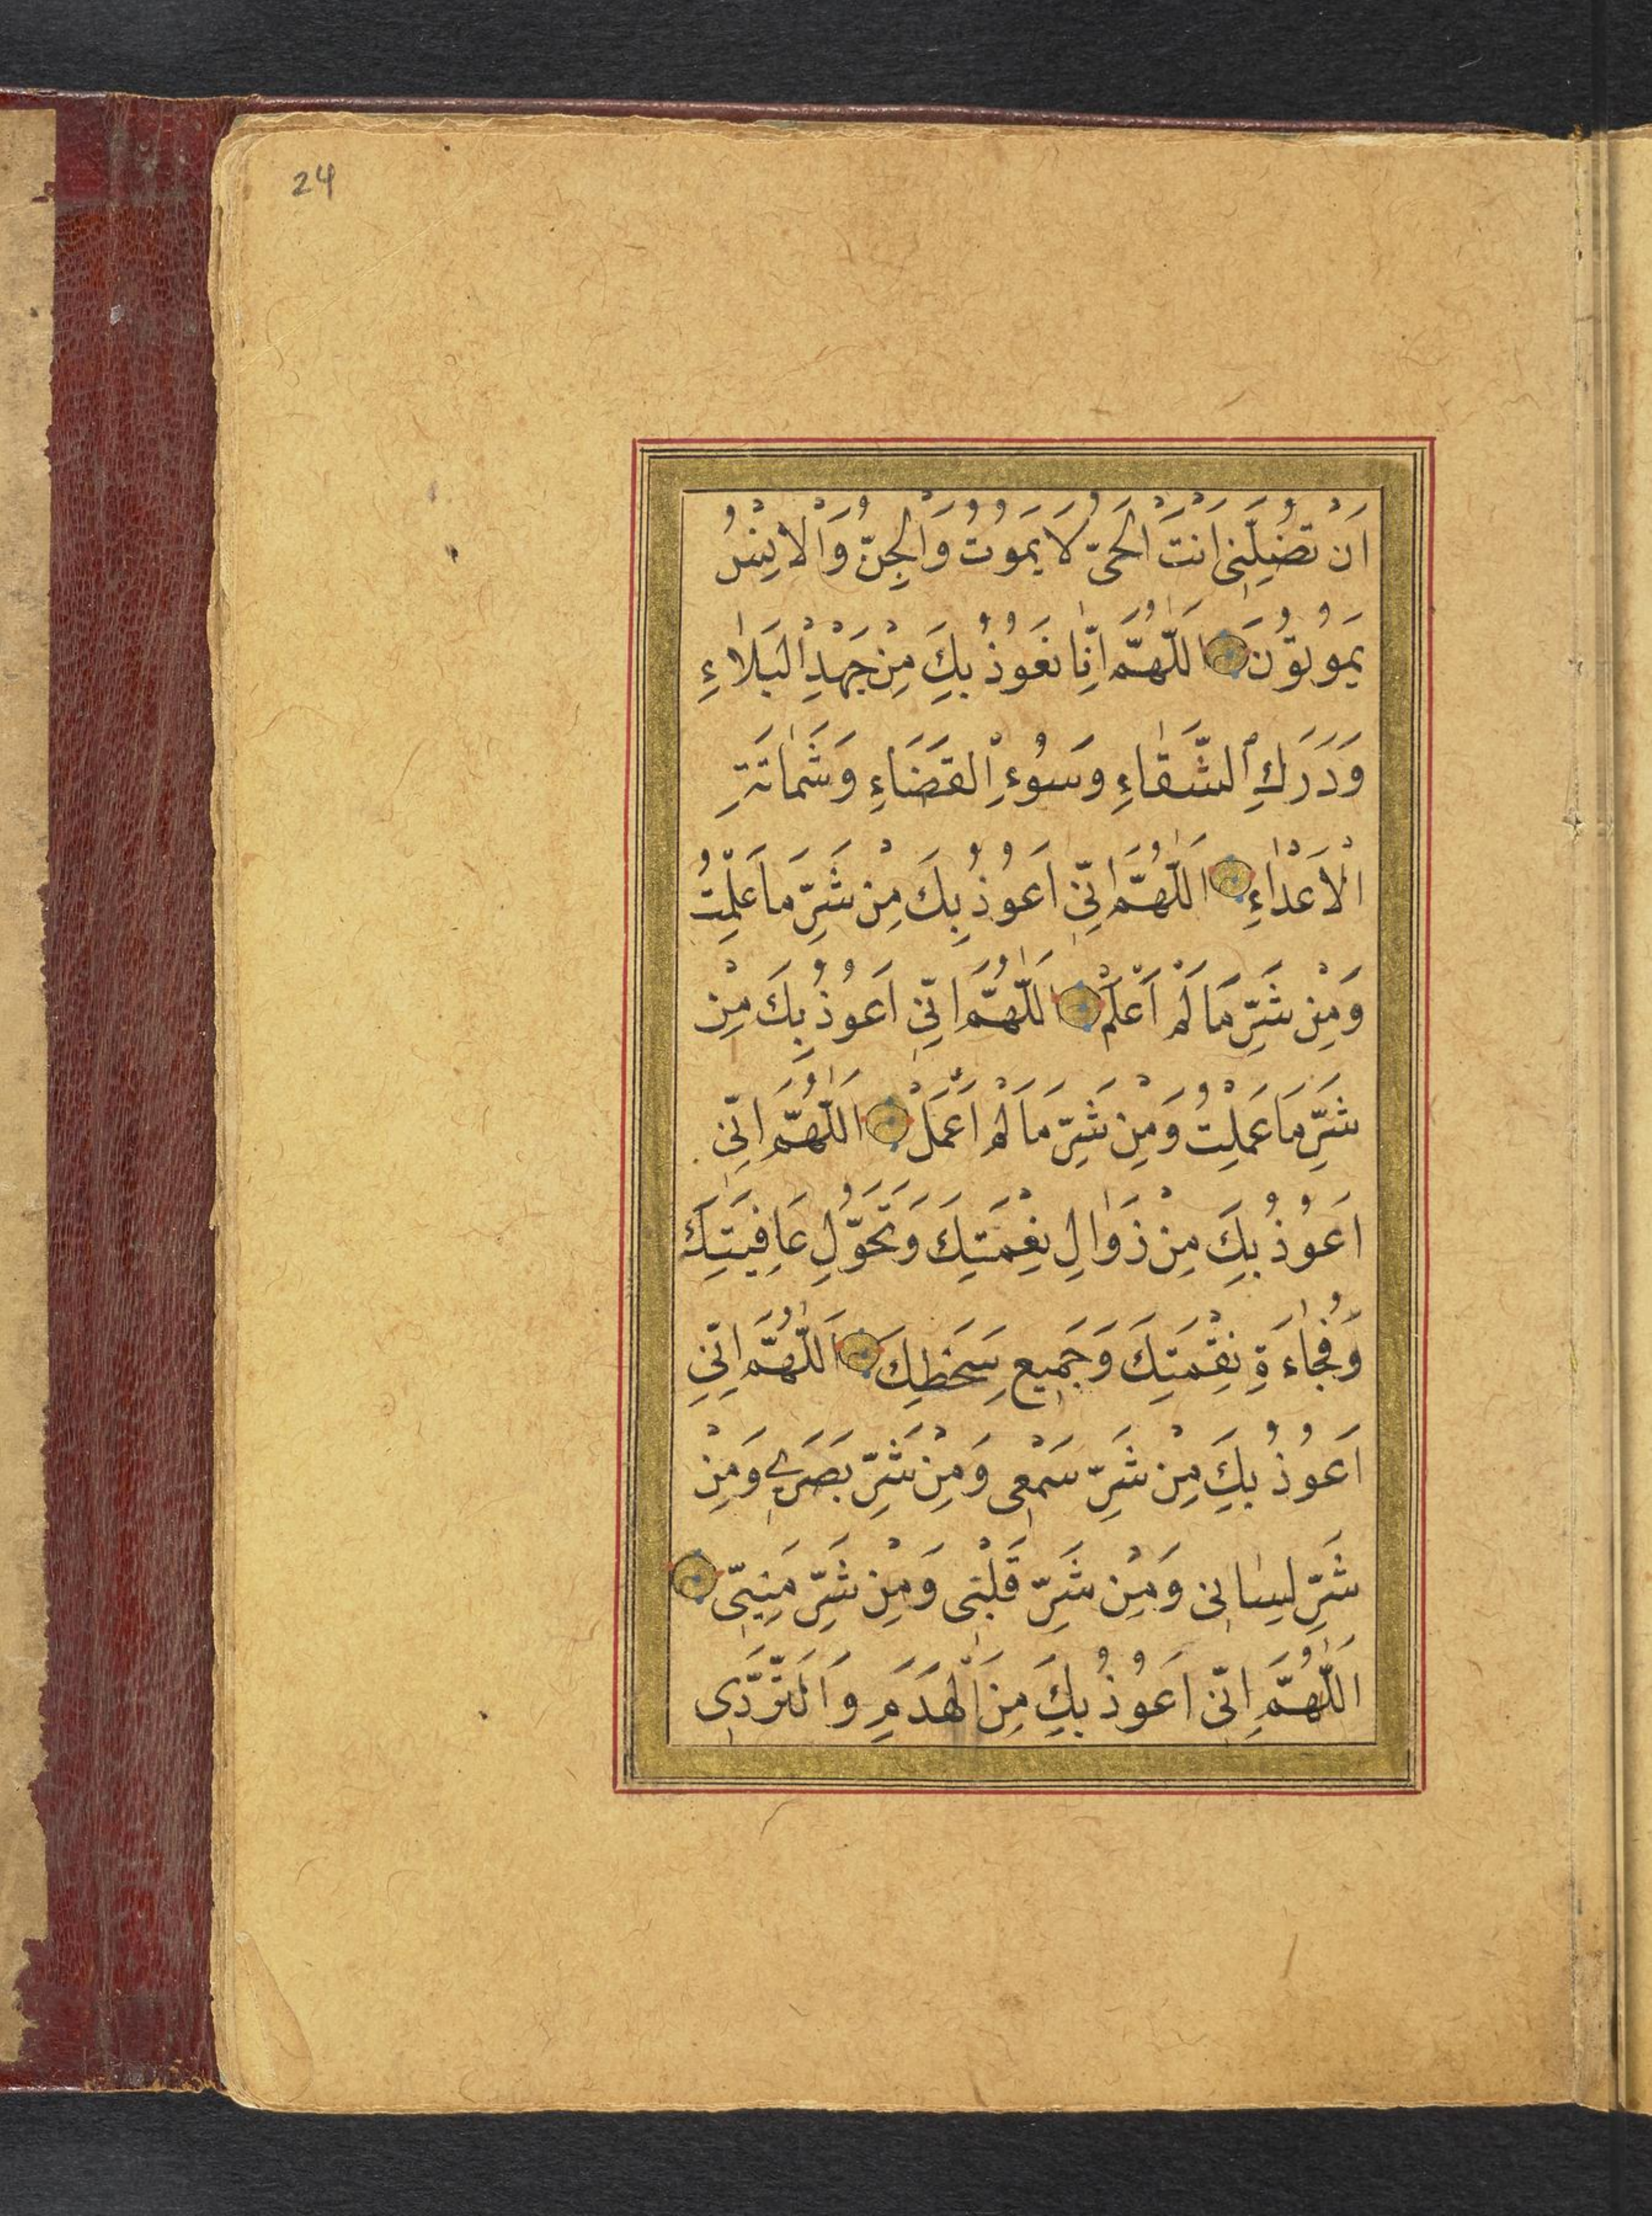 24
اَنْ تُضِلَّنِى اَنْتَ الْحَىُّ لَا يَمُوتُ وَالْجِنُّ وَالْاِنْسُ
يَمُوتُوْنَ اَللّٰهُمَّ اِنَّا نَعُوْذُ بِكَ مِنْ جَهْدِ الْبَلَاءِ
وَدَرَكِ الشَّقَاءِ وَسُوْءِ الْقَضَاءِ وَشَمَاتَةِ
الْاَعْدَاءِ اَللّٰهُمَّ اِنِّى اَعُوْذُ بِكَ مِنْ شَرِّ مَا عَلِمْتُ
وَمِنْ شَرِّ مَا لَمْ اَعْلَمْ اَللّٰهُمَّ اِنِّى اَعُوْذُ بِكَ مِنْ
شَرِّ مَا عَمِلْتُ وَمِنْ شَرِّ مَا لَمْ اَعْمَلْ اَللّٰهُمَّ اِنِّى
اَعُوْذُ بِكَ مِنْ زَوَالِ نِعْمَتِكَ وَتَحَوُّلِ عَافِيَتِكَ
وَفُجَاءَةِ نِقْمَتِكَ وَجَمِيعِ سَخَطِكَ اَللّٰهُمَّ اِنِّى
اَعُوْذُ بِكَ مِنْ شَرِّ سَمْعِى وَمِنْ شَرِّ بَصَرِى وَمِنْ
شَرِّ لِسَانِى وَمِنْ شَرِّ قَلْبِى وَمِنْ شَرِّ مَنِيِّى
اَللّٰهُمَّ اِنِّى اَعُوْذُ بِكَ مِنَ الْهَدَمِ وَالتَّرَدِّى